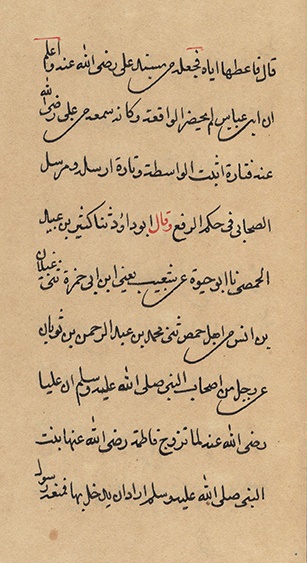 قال فاعطها اياه فجعله من مسند على رضى الله عنه واعلم
ان ابن عباس لم يحضر الواقعة وكانه سمعه من على رضى الله
عنه فتارة اثبت الواسطة وتارة ارسل ومرسل
الصحابى فى حكم الرفع وقال ابو داود ثنا كثير بن عبيد
الحمصى نا ابو حيوة عن شعيب يعنى ابن ابى حمزة ثنى غيلان
بن انس من اهل حمص ثنى محمد بن عبد الرحمن بن ثوبان
عن رجل من اصحاب النبى صلى الله عليه وسلم ان عليا
رضى الله عنه لما تزوج فاطمة رضى الله عنها بنت
النبى صلى الله عليه وسلم اراد ان يدخل بها فمنعه رسول